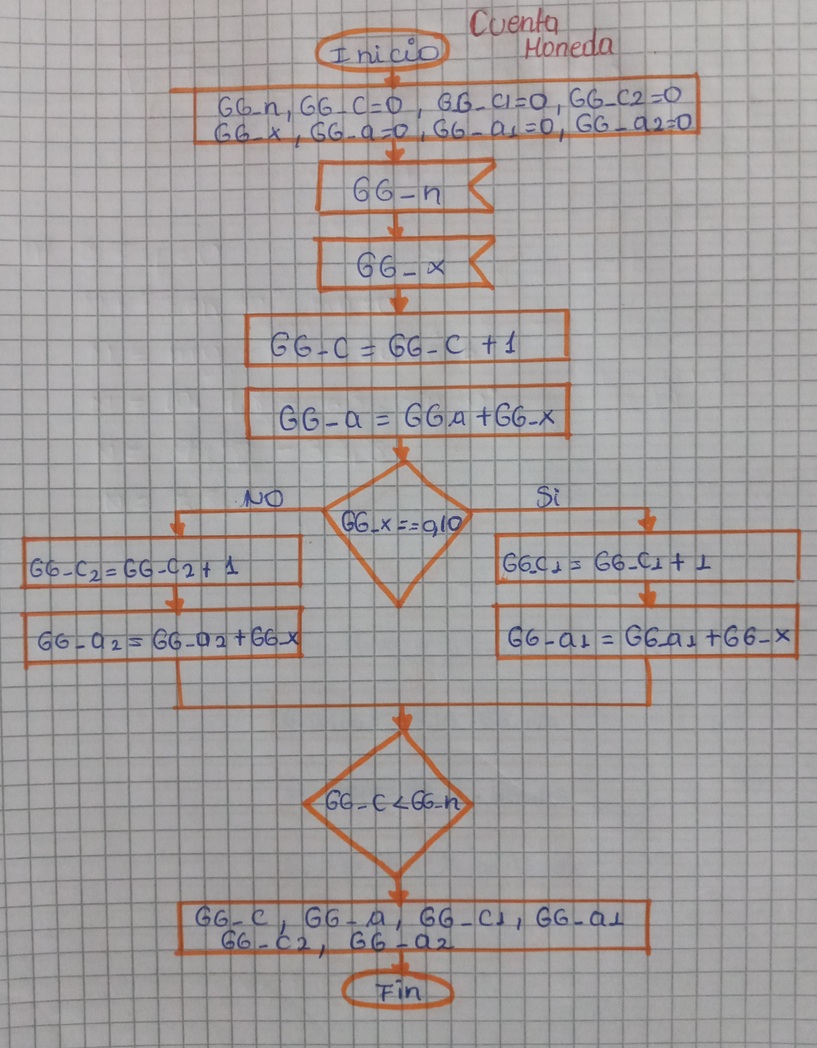 Cuenta
Moneda
Inicio
GG-n, GG-C=0, GG-C1=0, GG-C2=0
GG-x, GG-a=0, GG-a1=0, GG-a2=0
GG-n
GG-x
GG-C = GG-C +1
GG-a = GG.a +GG-x
NO
Si
GG-x==0,10
GG-C2=GG-C2+1
GG-C1= GG-C1+1
GG-a2=GG-a2+GG-x
GG-a1=GG-a1+GG-x
GG-C<GG-n
GG-C, GG-a, GG-C1, GG-a1
GG-C2, GG-a2
Fin